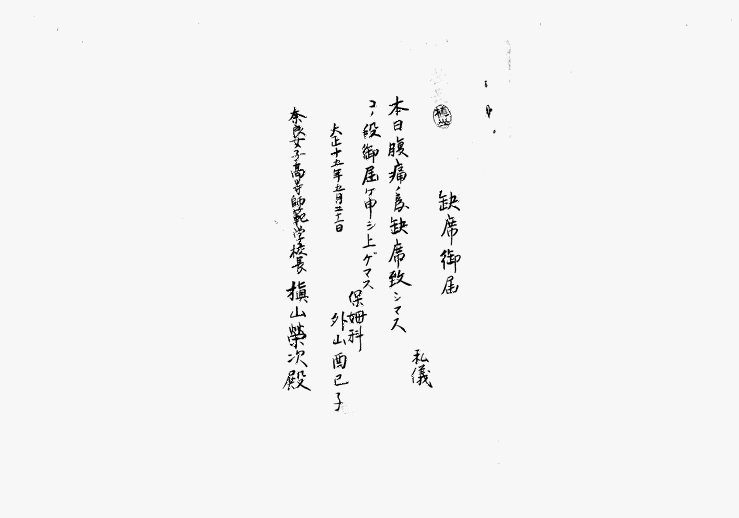 缺席御届
私儀
本日腹痛ノ為缺席致シマス
コノ段御届ケ申シ上ゲマス
保姆科
外山酉己子
大正十五年五月三十一日
奈良女子高等師範学校長 槇山榮次殿